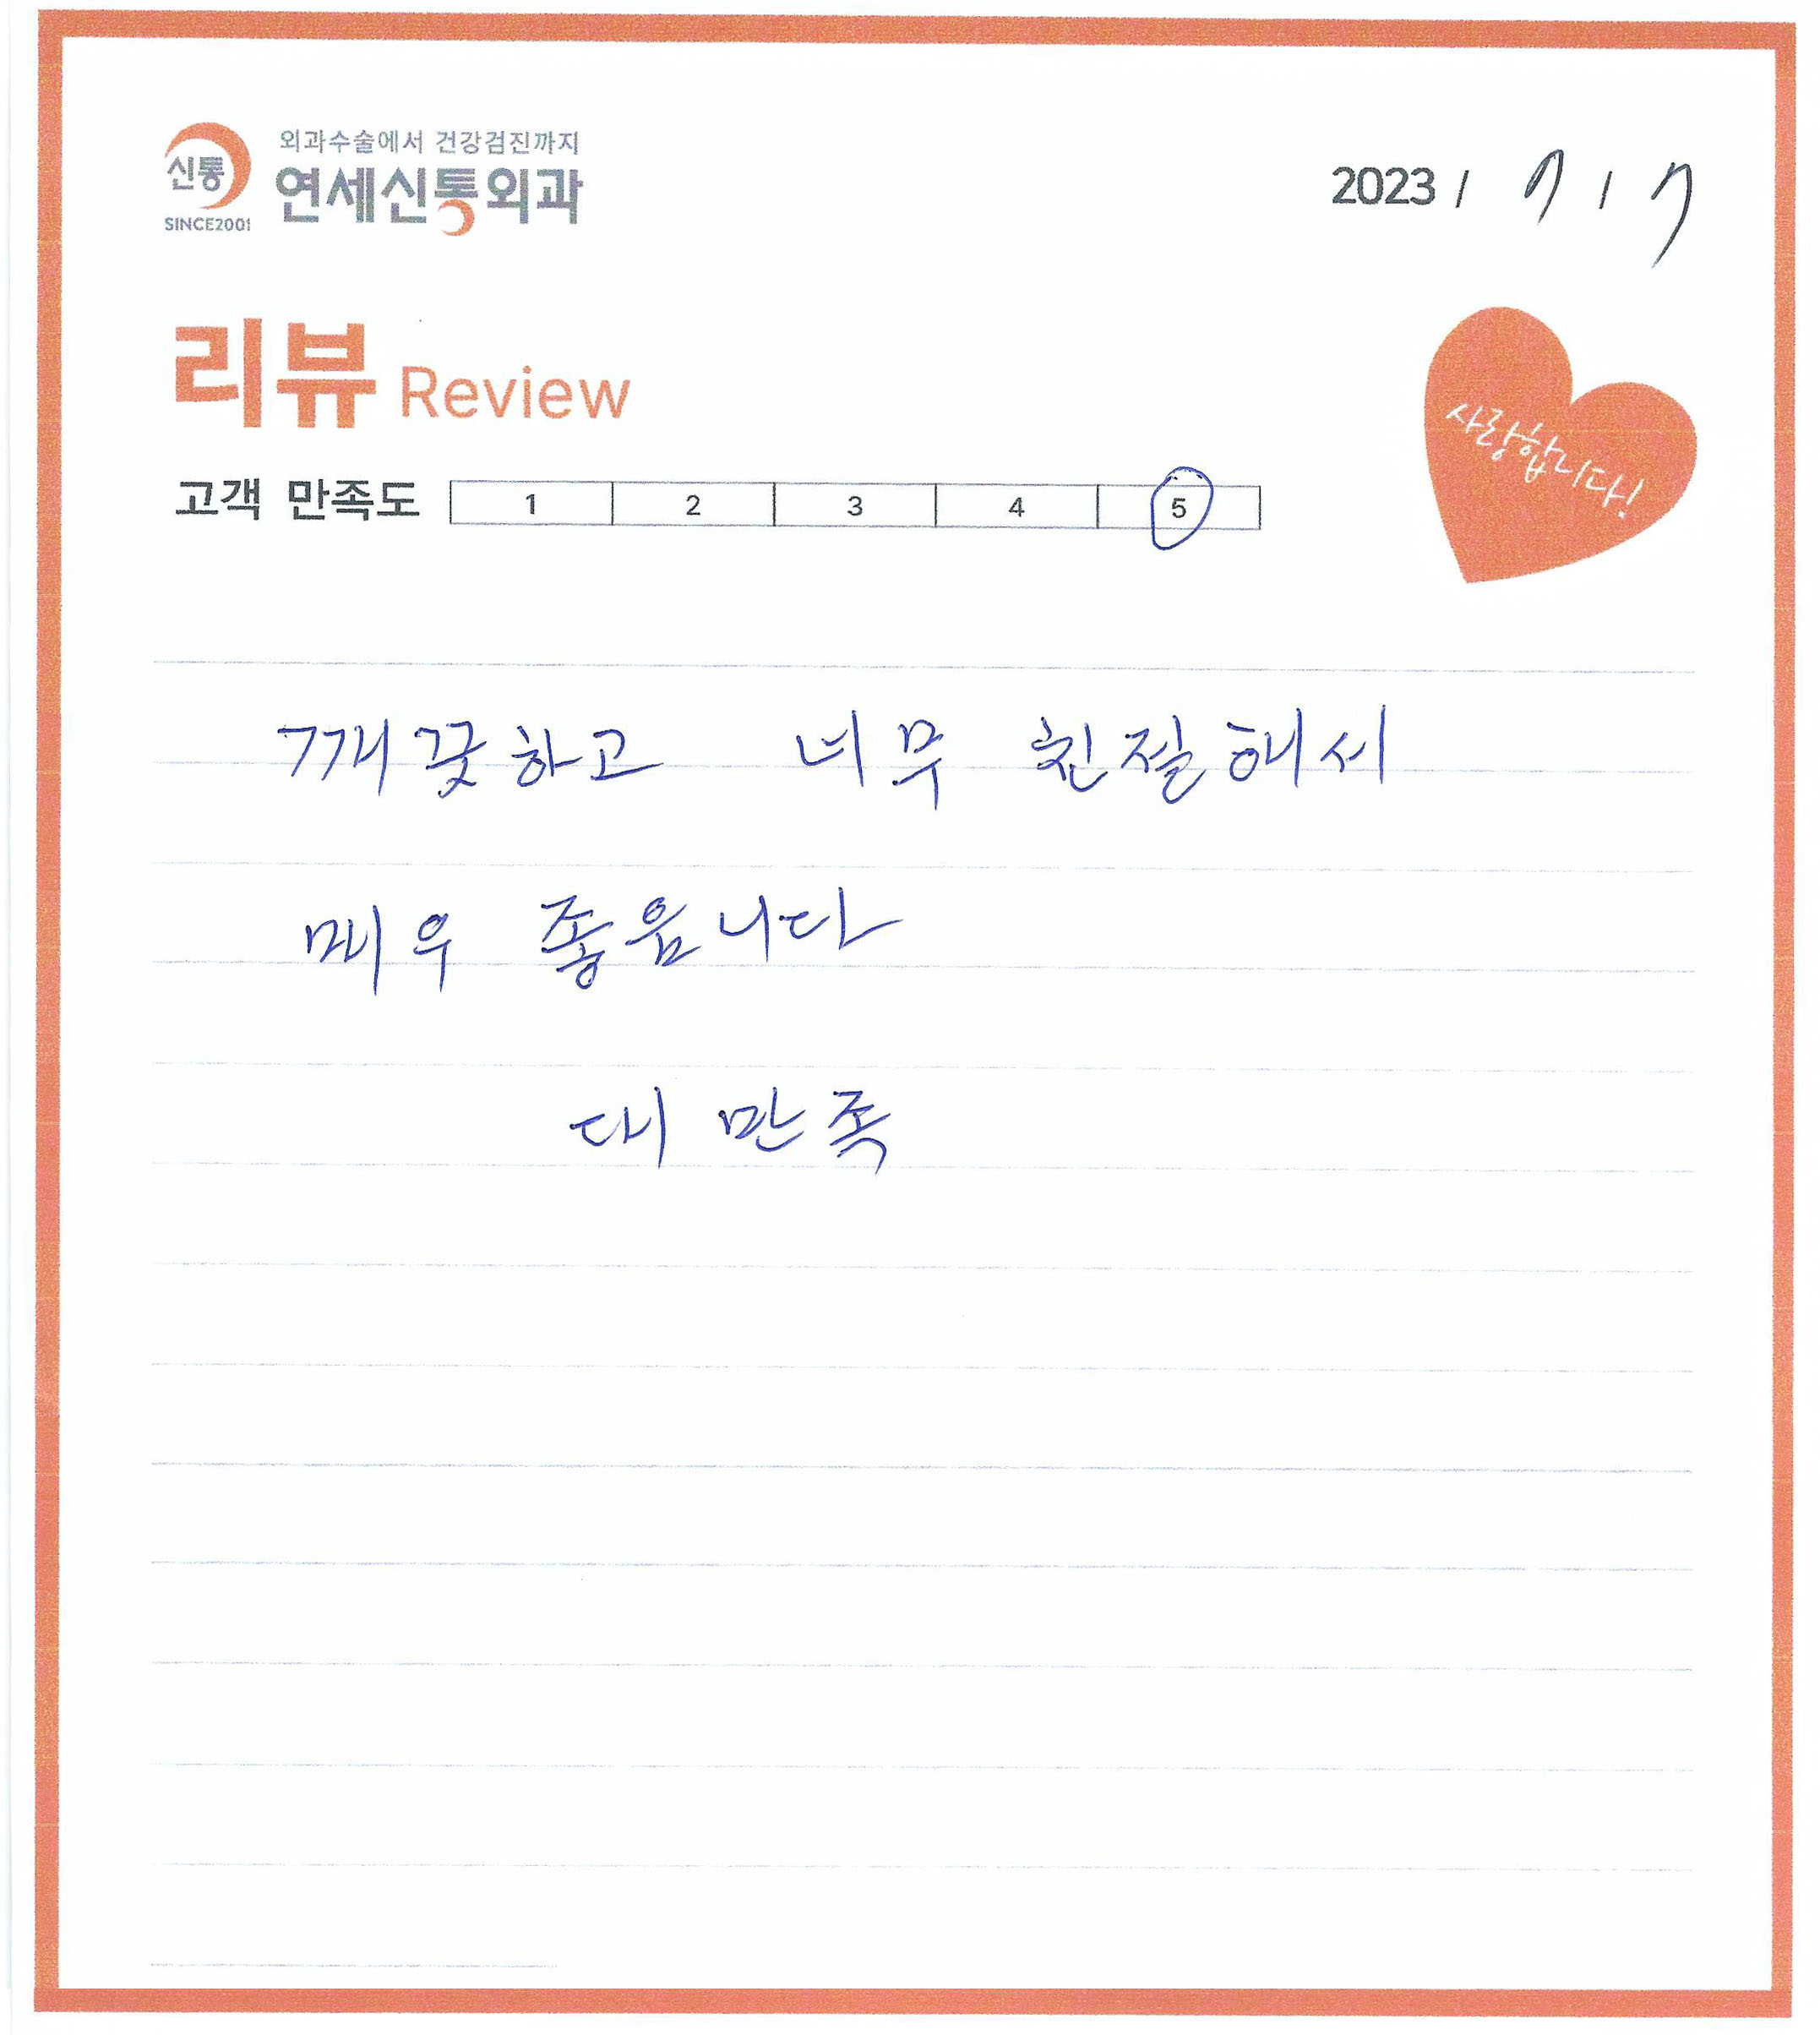 외과수술에서 건강검진까지
신통 연세신통외과
SINCE2001
2023 / 7 / 7
리뷰 Review
사랑합니다!
고객 만족도 1 2 3 4 5
깨끗하고 너무 친절해서
매우 좋읍니다
대 만족